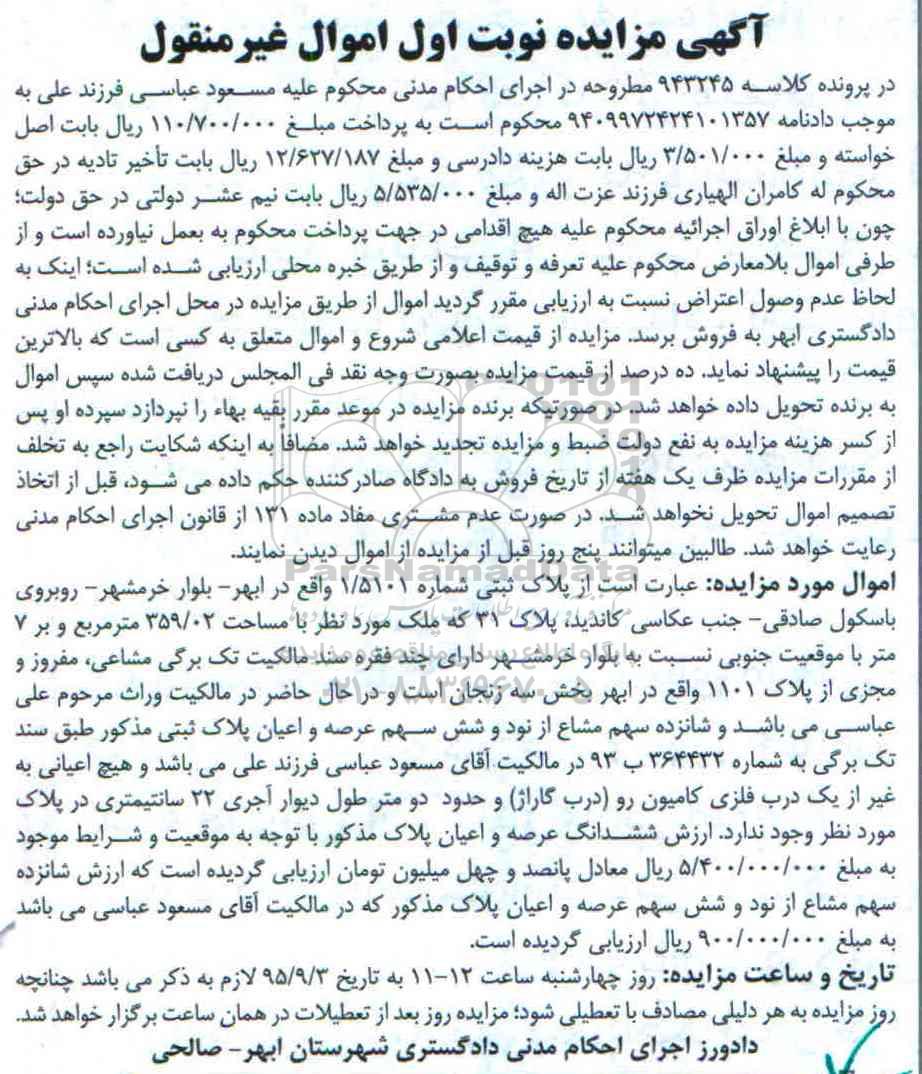 آگهی مزایده نوبت اول اموال غیرمنقول
در پرونده کلاسه ۹۴۳۲۴۵ مطروحه در اجرای احکام مدنی محکوم علیه مسعود عباسی فرزند علی به
موجب دادنامه ۹۴۰۹۹۷۲۴۲۴۱۰۱۳۵۷ محکوم است به پرداخت مبلغ ۱۱۰/۷۰۰/۰۰۰ ریال بابت اصل
خواسته و مبلغ ۳/۵۰۱/۰۰۰ ریال بابت هزینه دادرسی و مبلغ ۱۲/۶۲۷/۱۸۷ ریال بابت تأخیر تادیه در حق
محکوم له کامران الهیاری فرزند عزت اله و مبلغ ۵/۵۳۵/۰۰۰ ریال بابت نیم عشر دولتی در حق دولت؛
چون با ابلاغ اوراق اجرائیه محکوم علیه هیچ اقدامی در جهت پرداخت محکوم به بعمل نیاورده است و از
طرفی اموال بلامعارض محکوم علیه تعرفه و توقیف و از طریق خبره محلی ارزیابی شده است؛ اینک به
لحاظ عدم وصول اعتراض نسبت به ارزیابی مقرر گردید اموال از طریق مزایده در محل اجرای احکام مدنی
دادگستری ابهر به فروش برسد. مزایده از قیمت اعلامی شروع و اموال متعلق به کسی است که بالاترین
قیمت را پیشنهاد نماید. ده درصد از قیمت مزایده بصورت وجه نقد فی المجلس دریافت شده سپس اموال
به برنده تحویل داده خواهد شد. در صورتیکه برنده مزایده در موعد مقرر بقیه بهاء را نپردازد سپرده او پس
از کسر هزینه مزایده به نفع دولت ضبط و مزایده تجدید خواهد شد. مضافاً به اینکه شکایت راجع به تخلف
از مقررات مزایده ظرف یک هفته از تاریخ فروش به دادگاه صادرکننده حکم داده می شود، قبل از اتخاذ
تصمیم اموال تحویل نخواهد شد. در صورت عدم مشتری مفاد ماده ۱۳۱ از قانون اجرای احکام مدنی
رعایت خواهد شد. طالبین میتوانند پنج روز قبل از مزایده از اموال دیدن نمایند.
ParsNamadData
اموال مورد مزایده: عبارت است از پلاک ثبتی شماره ۱/۵۱۰۱ واقع در ابهر- بلوار خرمشهر- روبروی
باسکول صادقی- جنب عکاسی کاندید، پلاک ۳۱ که ملک مورد نظر با مساحت ۳۵۹/۰۲ مترمربع و بر ۷
متر با موقعیت جنوبی نسبت به بلوار خرمشهر دارای چند فقره سند مالکیت تک برگی مشاعی، مفروز و
مجزی از پلاک ۱۱۰۱ واقع در ابهر بخش سه زنجان است و در حال حاضر در مالکیت وراث مرحوم علی
عباسی می باشد و شانزده سهم مشاع از نود و شش سهم عرصه و اعیان پلاک ثبتی مذکور طبق سند
تک برگی به شماره ۳۶۴۴۳۲ ب ۹۳ در مالکیت آقای مسعود عباسی فرزند علی می باشد و هیچ اعیانی به
غیر از یک درب فلزی کامیون رو (درب گاراژ) و حدود دو متر طول دیوار آجری ۲۲ سانتیمتری در پلاک
مورد نظر وجود ندارد. ارزش ششدانگ عرصه و اعیان پلاک مذکور با توجه به موقعیت و شرایط موجود
به مبلغ ۵/۴۰۰/۰۰۰/۰۰۰ ریال معادل پانصد و چهل میلیون تومان ارزیابی گردیده است که ارزش شانزده
سهم مشاع از نود و شش سهم عرصه و اعیان پلاک مذکور که در مالکیت آقای مسعود عباسی می باشد
به مبلغ ۹۰۰/۰۰۰/۰۰۰ ریال ارزیابی گردیده است.
تاریخ و ساعت مزایده: روز چهارشنبه ساعت ۱۲-۱۱ به تاریخ ۹۵/۹/۳ لازم به ذکر می باشد چنانچه
روز مزایده به هر دلیلی مصادف با تعطیلی شود؛ مزایده روز بعد از تعطیلات در همان ساعت برگزار خواهد شد.
دادورز اجرای احکام مدنی دادگستری شهرستان ابهر- صالحی